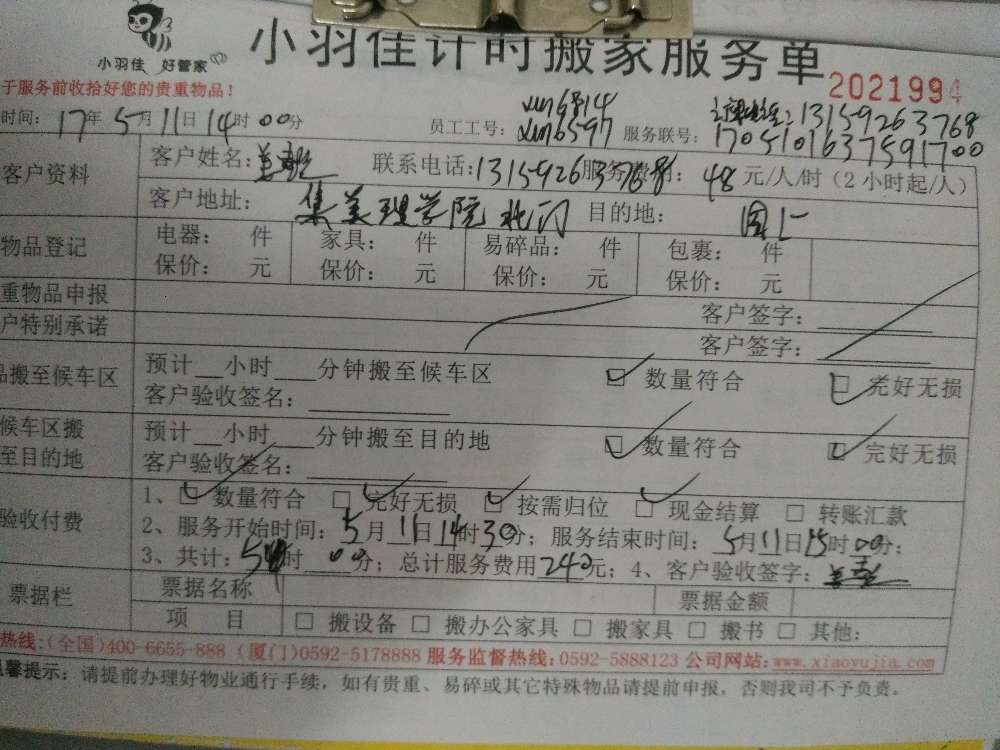 小羽佳 好管家
小羽佳计时搬家服务单
2021994
于服务前收拾好您的贵重物品!
时间: 17年5月11日14时00分
员工工号: xm6814
xm6597
服务联号: 1705101637591700
13159263768
客户资料
客户姓名:
联系电话: 13159263768
48元/人/时 (2小时起/人)
客户地址: 集美理学院北门
目的地:
物品登记
电器: 件 家具: 件 易碎品: 件 包裹: 件
保价: 元 保价: 元 保价: 元 保价: 元
重物品申报
客户签字:
户特别承诺
客户签字:
品搬至候车区
预计__小时___分钟搬至候车区 数量符合 完好无损
客户验收签名:
候车区搬
至目的地
预计__小时___分钟搬至目的地 数量符合 完好无损
客户验收签名:
验收付费
1、数量符合 完好无损 按需归位 现金结算 转账汇款
2、服务开始时间: 5月11日14时30分; 服务结束时间: 5月11日15时00分;
3、共计: 5时00分; 总计服务费用240元; 4、客户验收签字:
票据栏
票据名称 票据金额
项 目 搬设备 搬办公家具 搬家具 搬书 其他:
热线:(全国)400-6655-888 (厦门)0592-5178888 服务监督热线:0592-5888123 公司网站:www.xiaoyujia.com
温馨提示: 请提前办理好物业通行手续, 如有贵重、易碎或其它特殊物品请提前申报, 否则我司不予负责。